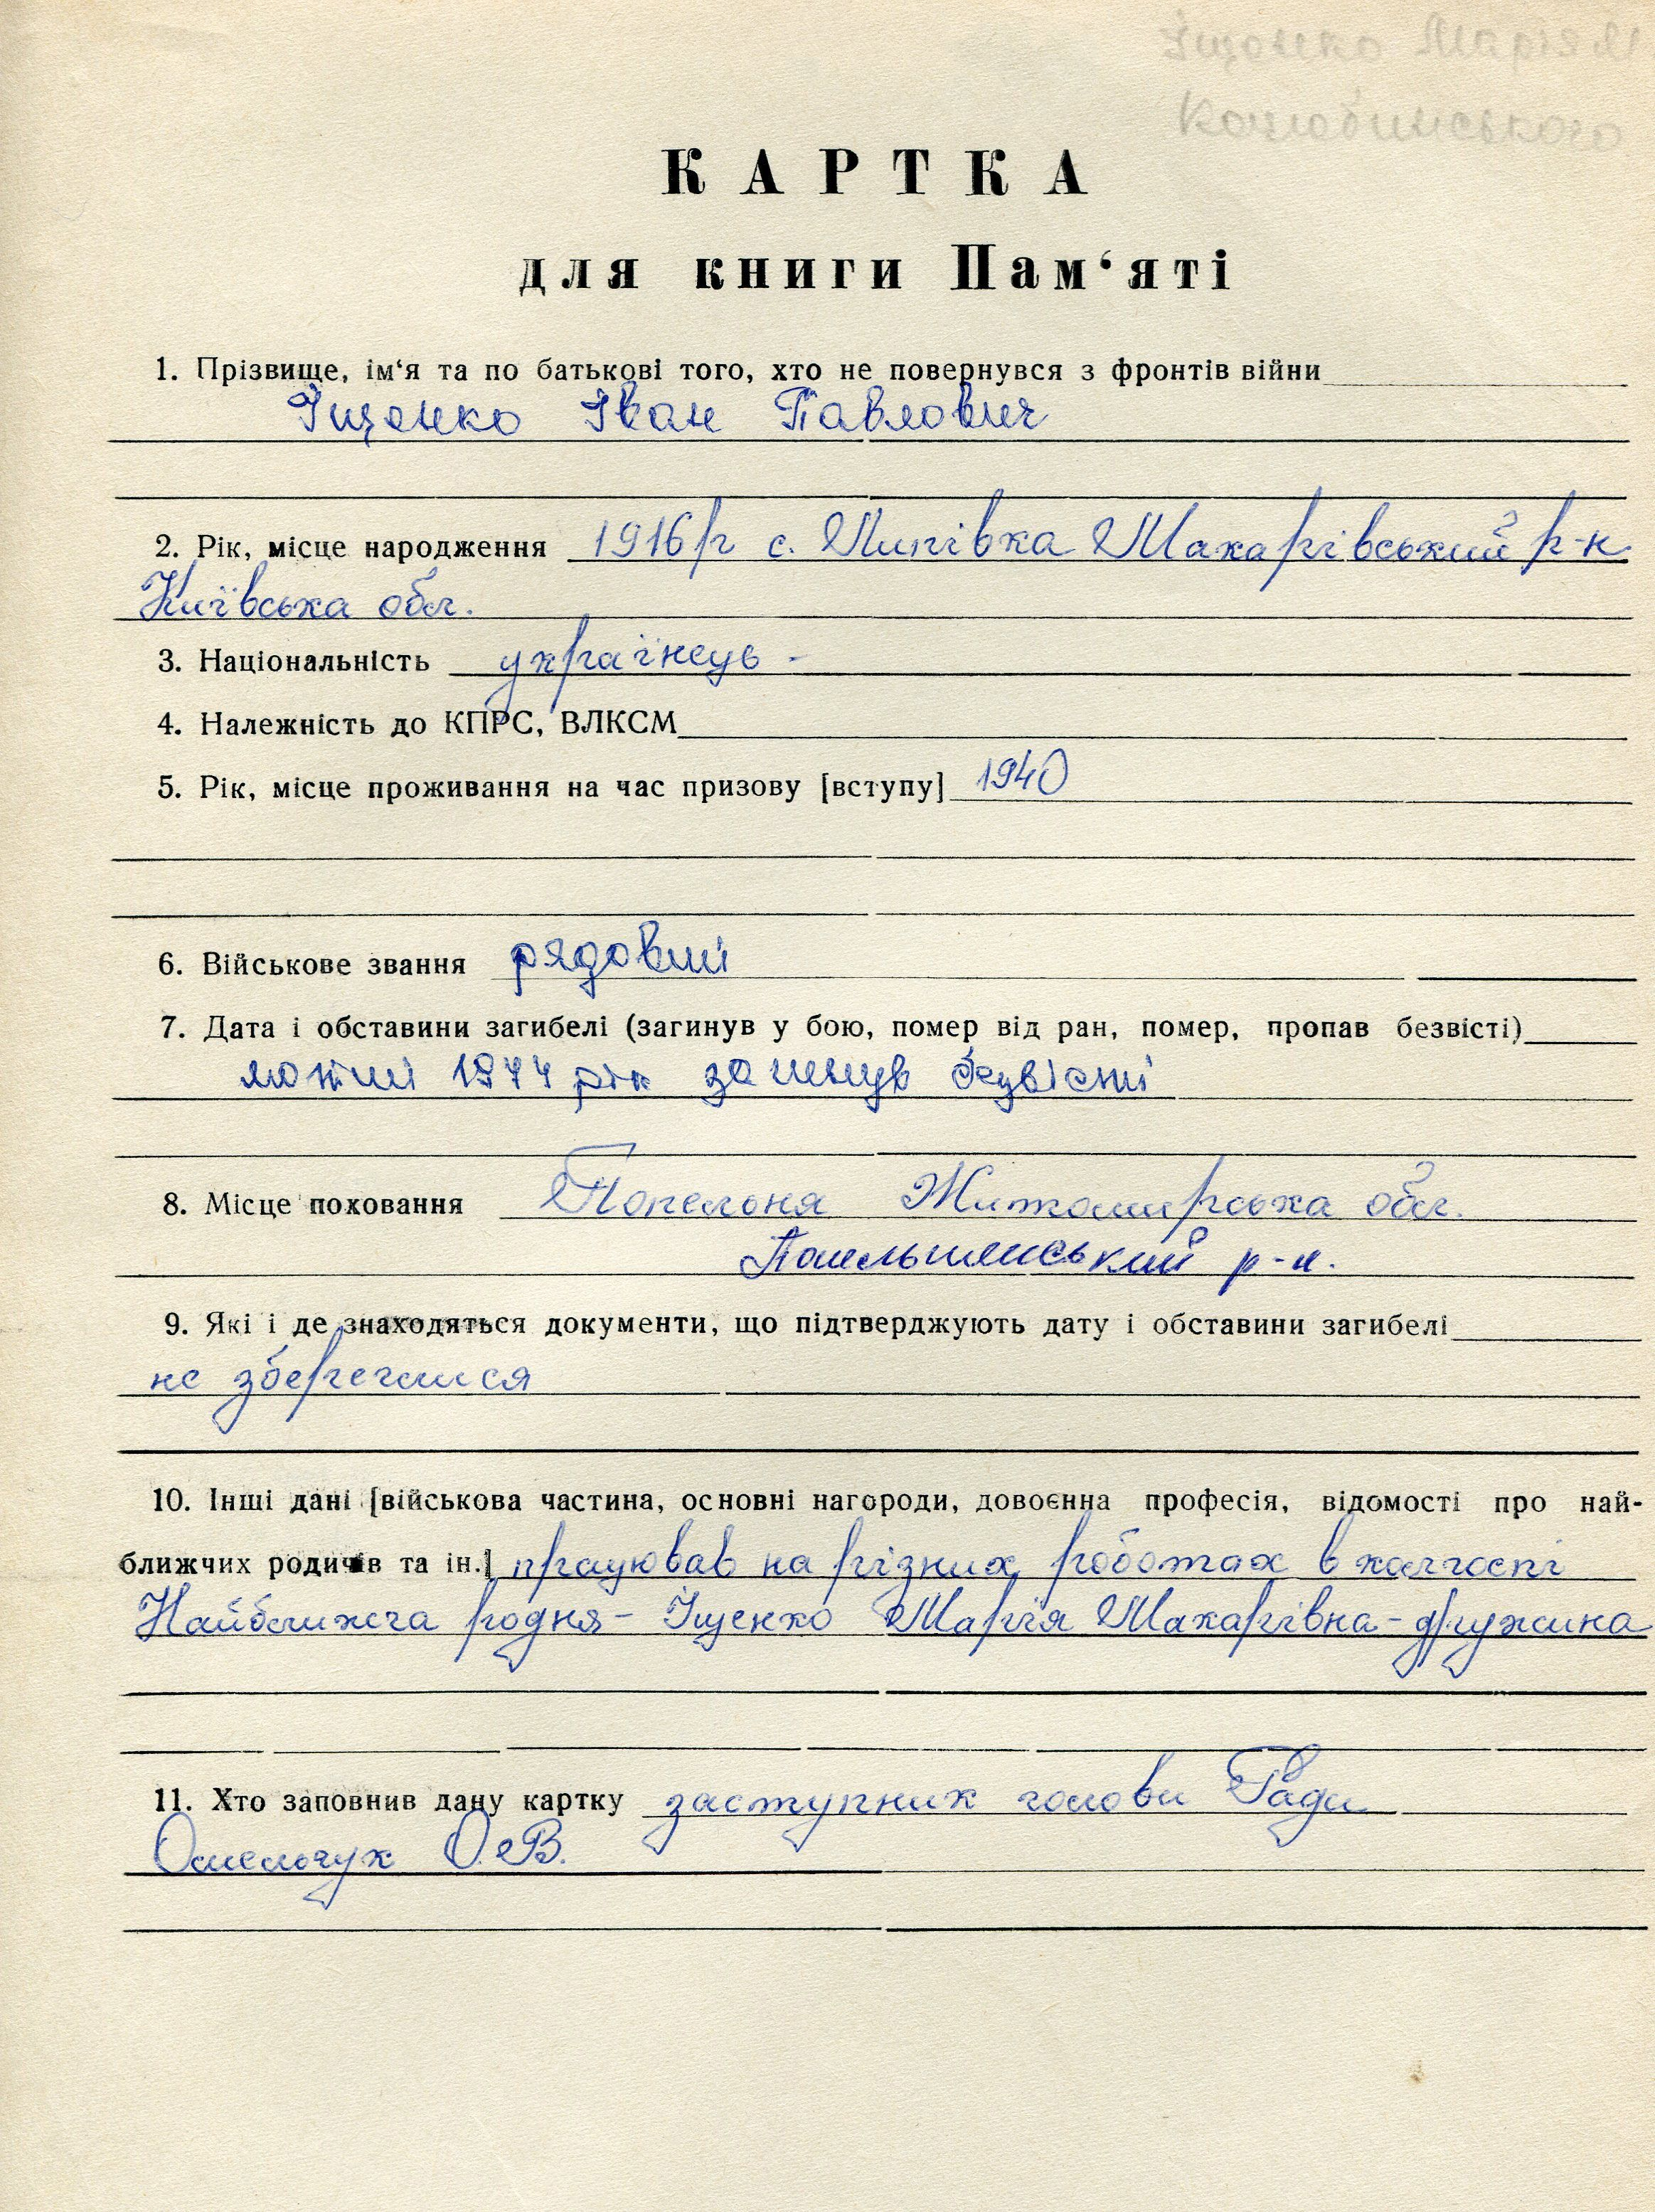 Іщенко Марія М
Коцюбинського
КАРТКА
для книги Пам‘яті
1. Прізвище, ім‘я та по батькові того, хто не повернувся з фронтів війни
Іщенко Іван Павлович
2. Рік, місце народження 1916р с. Липівка Макарівський р-н
Київська обл.
3. Національність українець -
4. Належність до КПРС, ВЛКСМ
5. Рік, місце проживання на час призову [вступу] 1940
6. Військове звання рядовий
7. Дата і обставини загибелі (загинув у бою, помер від ран, помер, пропав безвісті)
лютий 1944 рік загинув безвісті
8. Місце поховання Попельня Житомирська обл.
р-н.
9. Які і де знаходяться документи, що підтверджують дату і обставини загибелі
не збереглися
10. Інші дані [військова частина, основні нагороди, довоєнна професія, відомості про най-
ближчих родичів та ін.] працював на різних роботах в колгоспі
Найближча родня - Іщенко Марія Макарівна - дружина
11. Хто заповнив дану картку заступник голови Ради
Омельчук О.В.